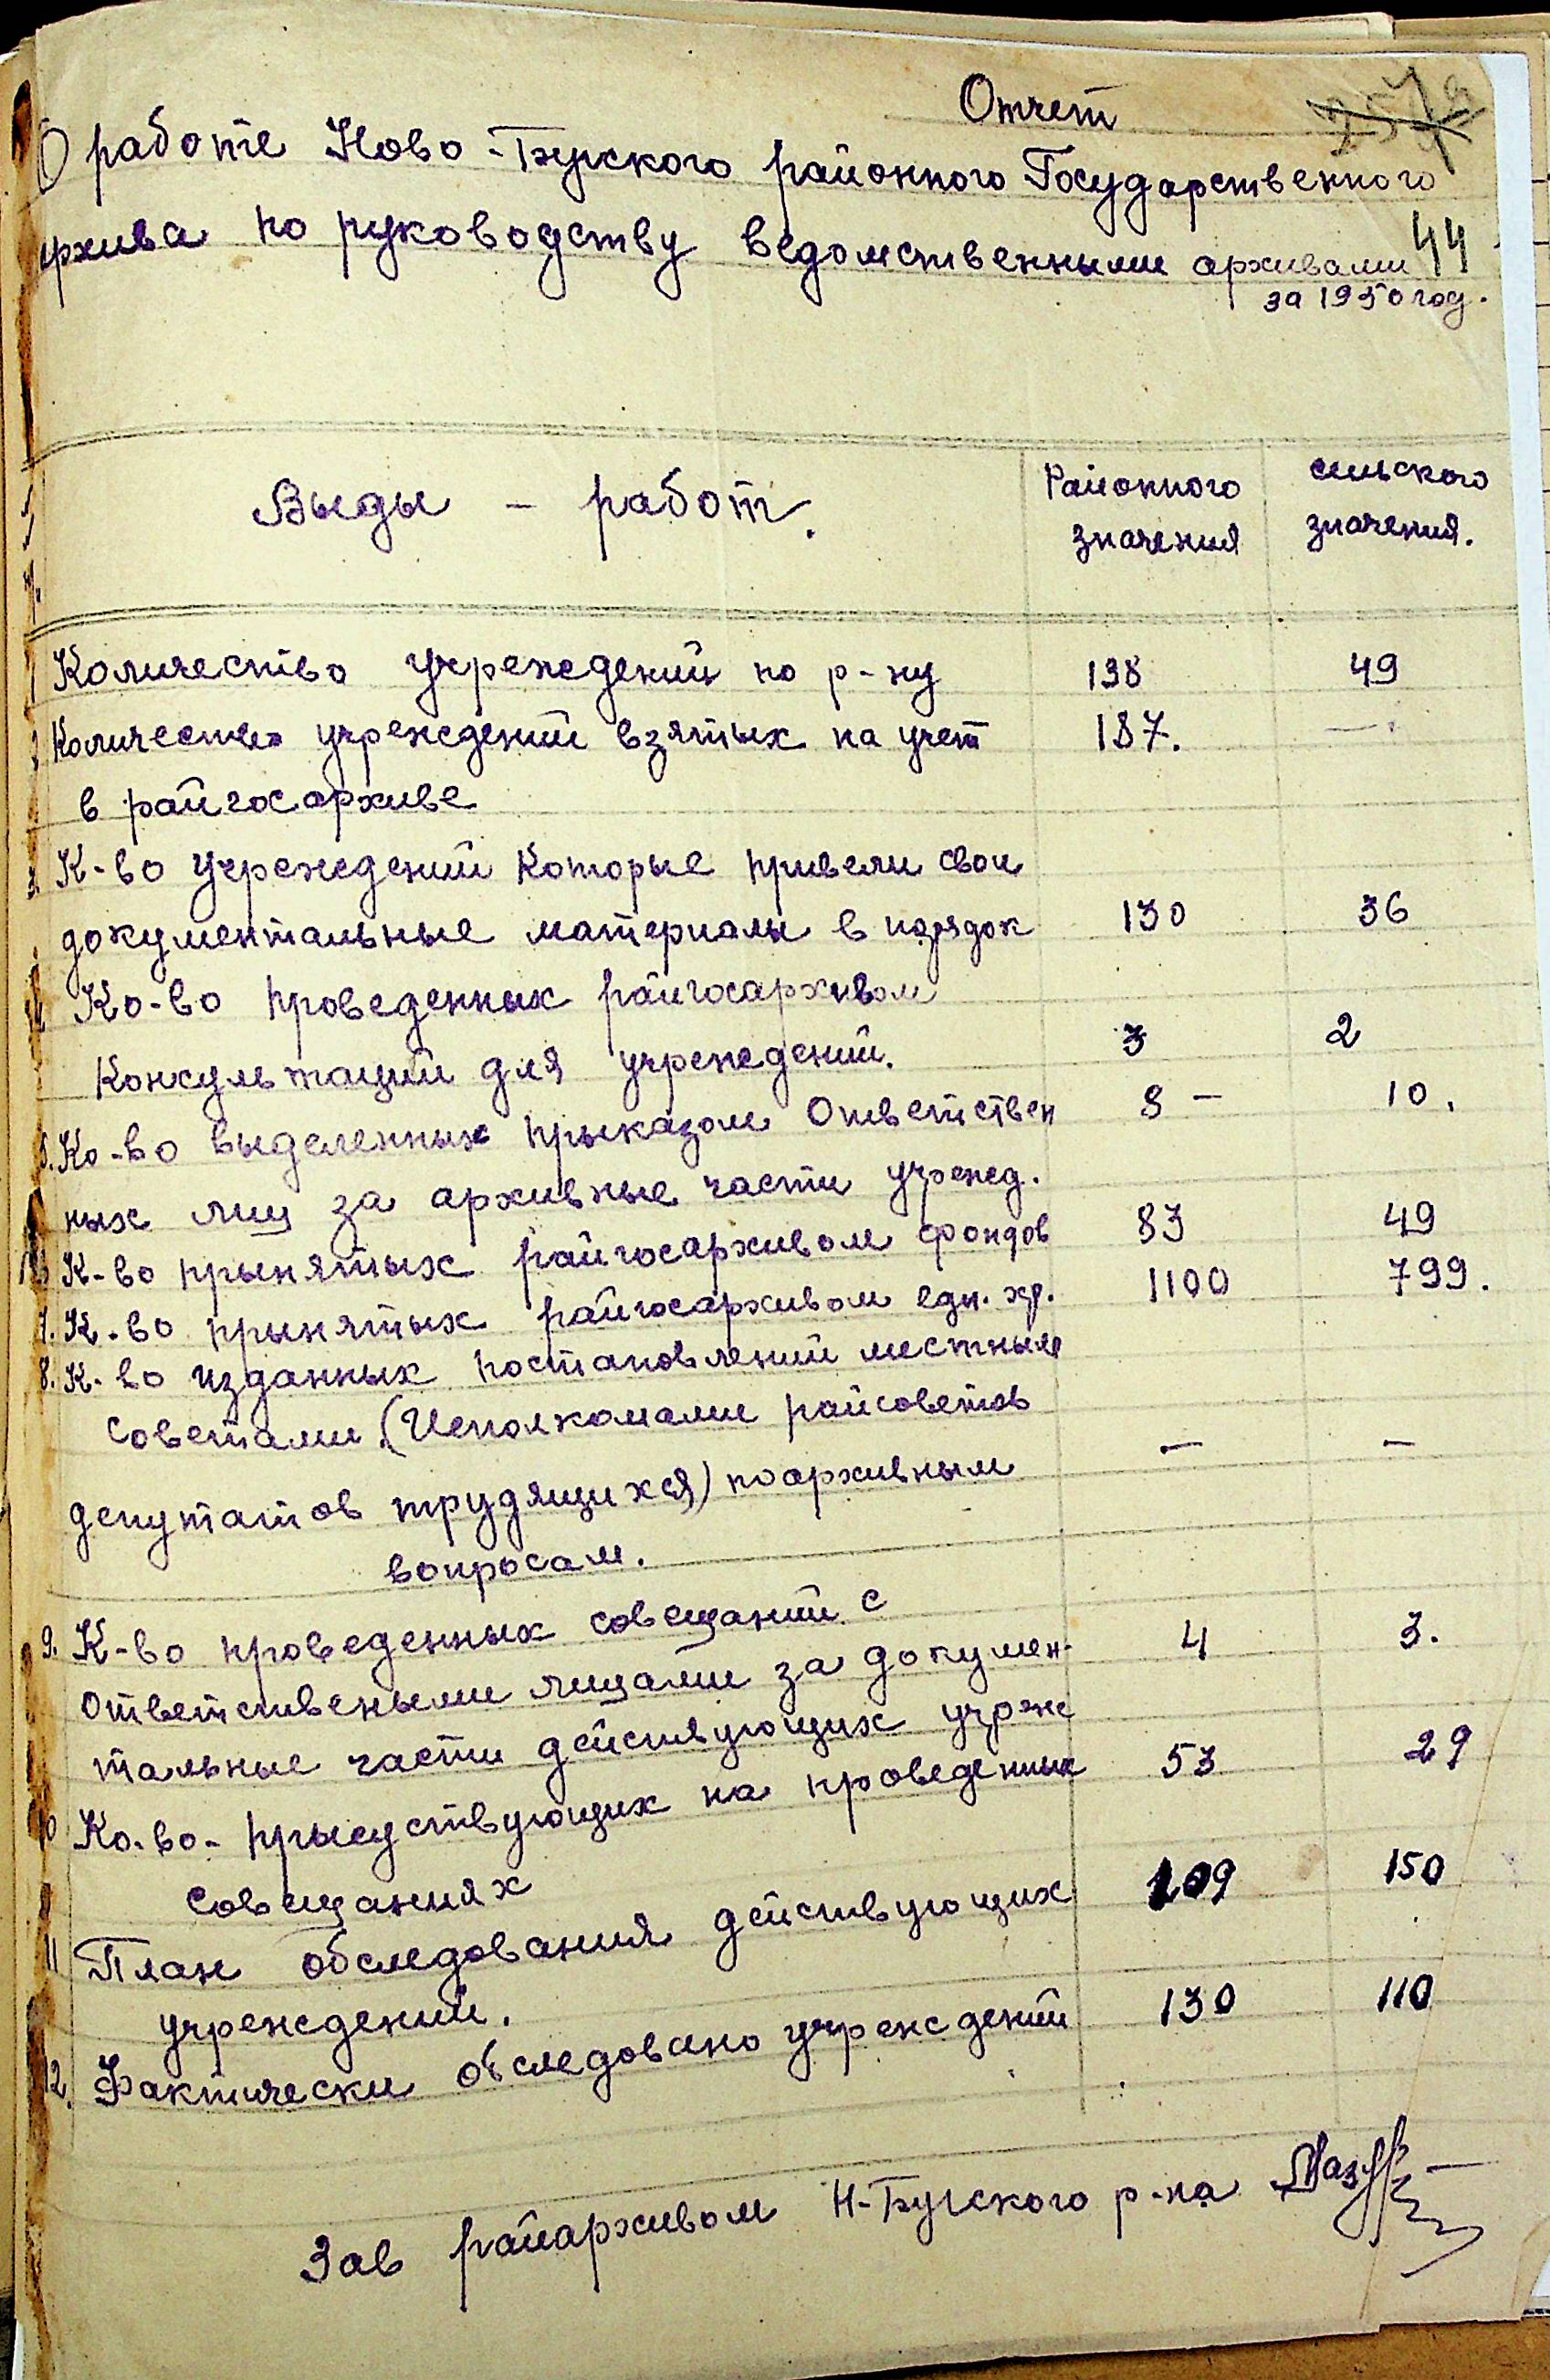 Отчет
О работе Ново-Бугского районного Государственного
архива по руководству ведомственными архивами 44
за 1950 год.
Выды - работ.
Районного значения
сельского значения.
1 Количество учреждений по р-ну 138 49
2 Количество учреждений взятых на учет 187. —
в райгосархиве
3 К-во учреждений которые привели свои
документальные материалы в порядок 130 36
4 Ко-во проведенных райгосархивом
консультаций для учреждений. 3 2
5. Ко-во выделенных прыказом ответствен 8 — 10.
ных лиц за архивные части учрежд.
6 К-во прынятых райгосархивом фондов 83 49
7. К-во прынятых райгосархивом едн. хр. 1100 799.
8. К-во изданных постановлений местными
советами (Исполкомами райсоветов
депутатов трудящихся) по архивным — —
вопросам.
9. К-во проведенных совещаний с
ответствеными лицами за докумен- 4 3.
тальные части действующих учреж
10 Ко-во - прысуствующих на проведенных 53 29
совещаниях
11 План обследования действующих 109 150
учреждений.
12. Фактически обследовано учреждений 130 110
Зав райархивом Н-Бугского р-на